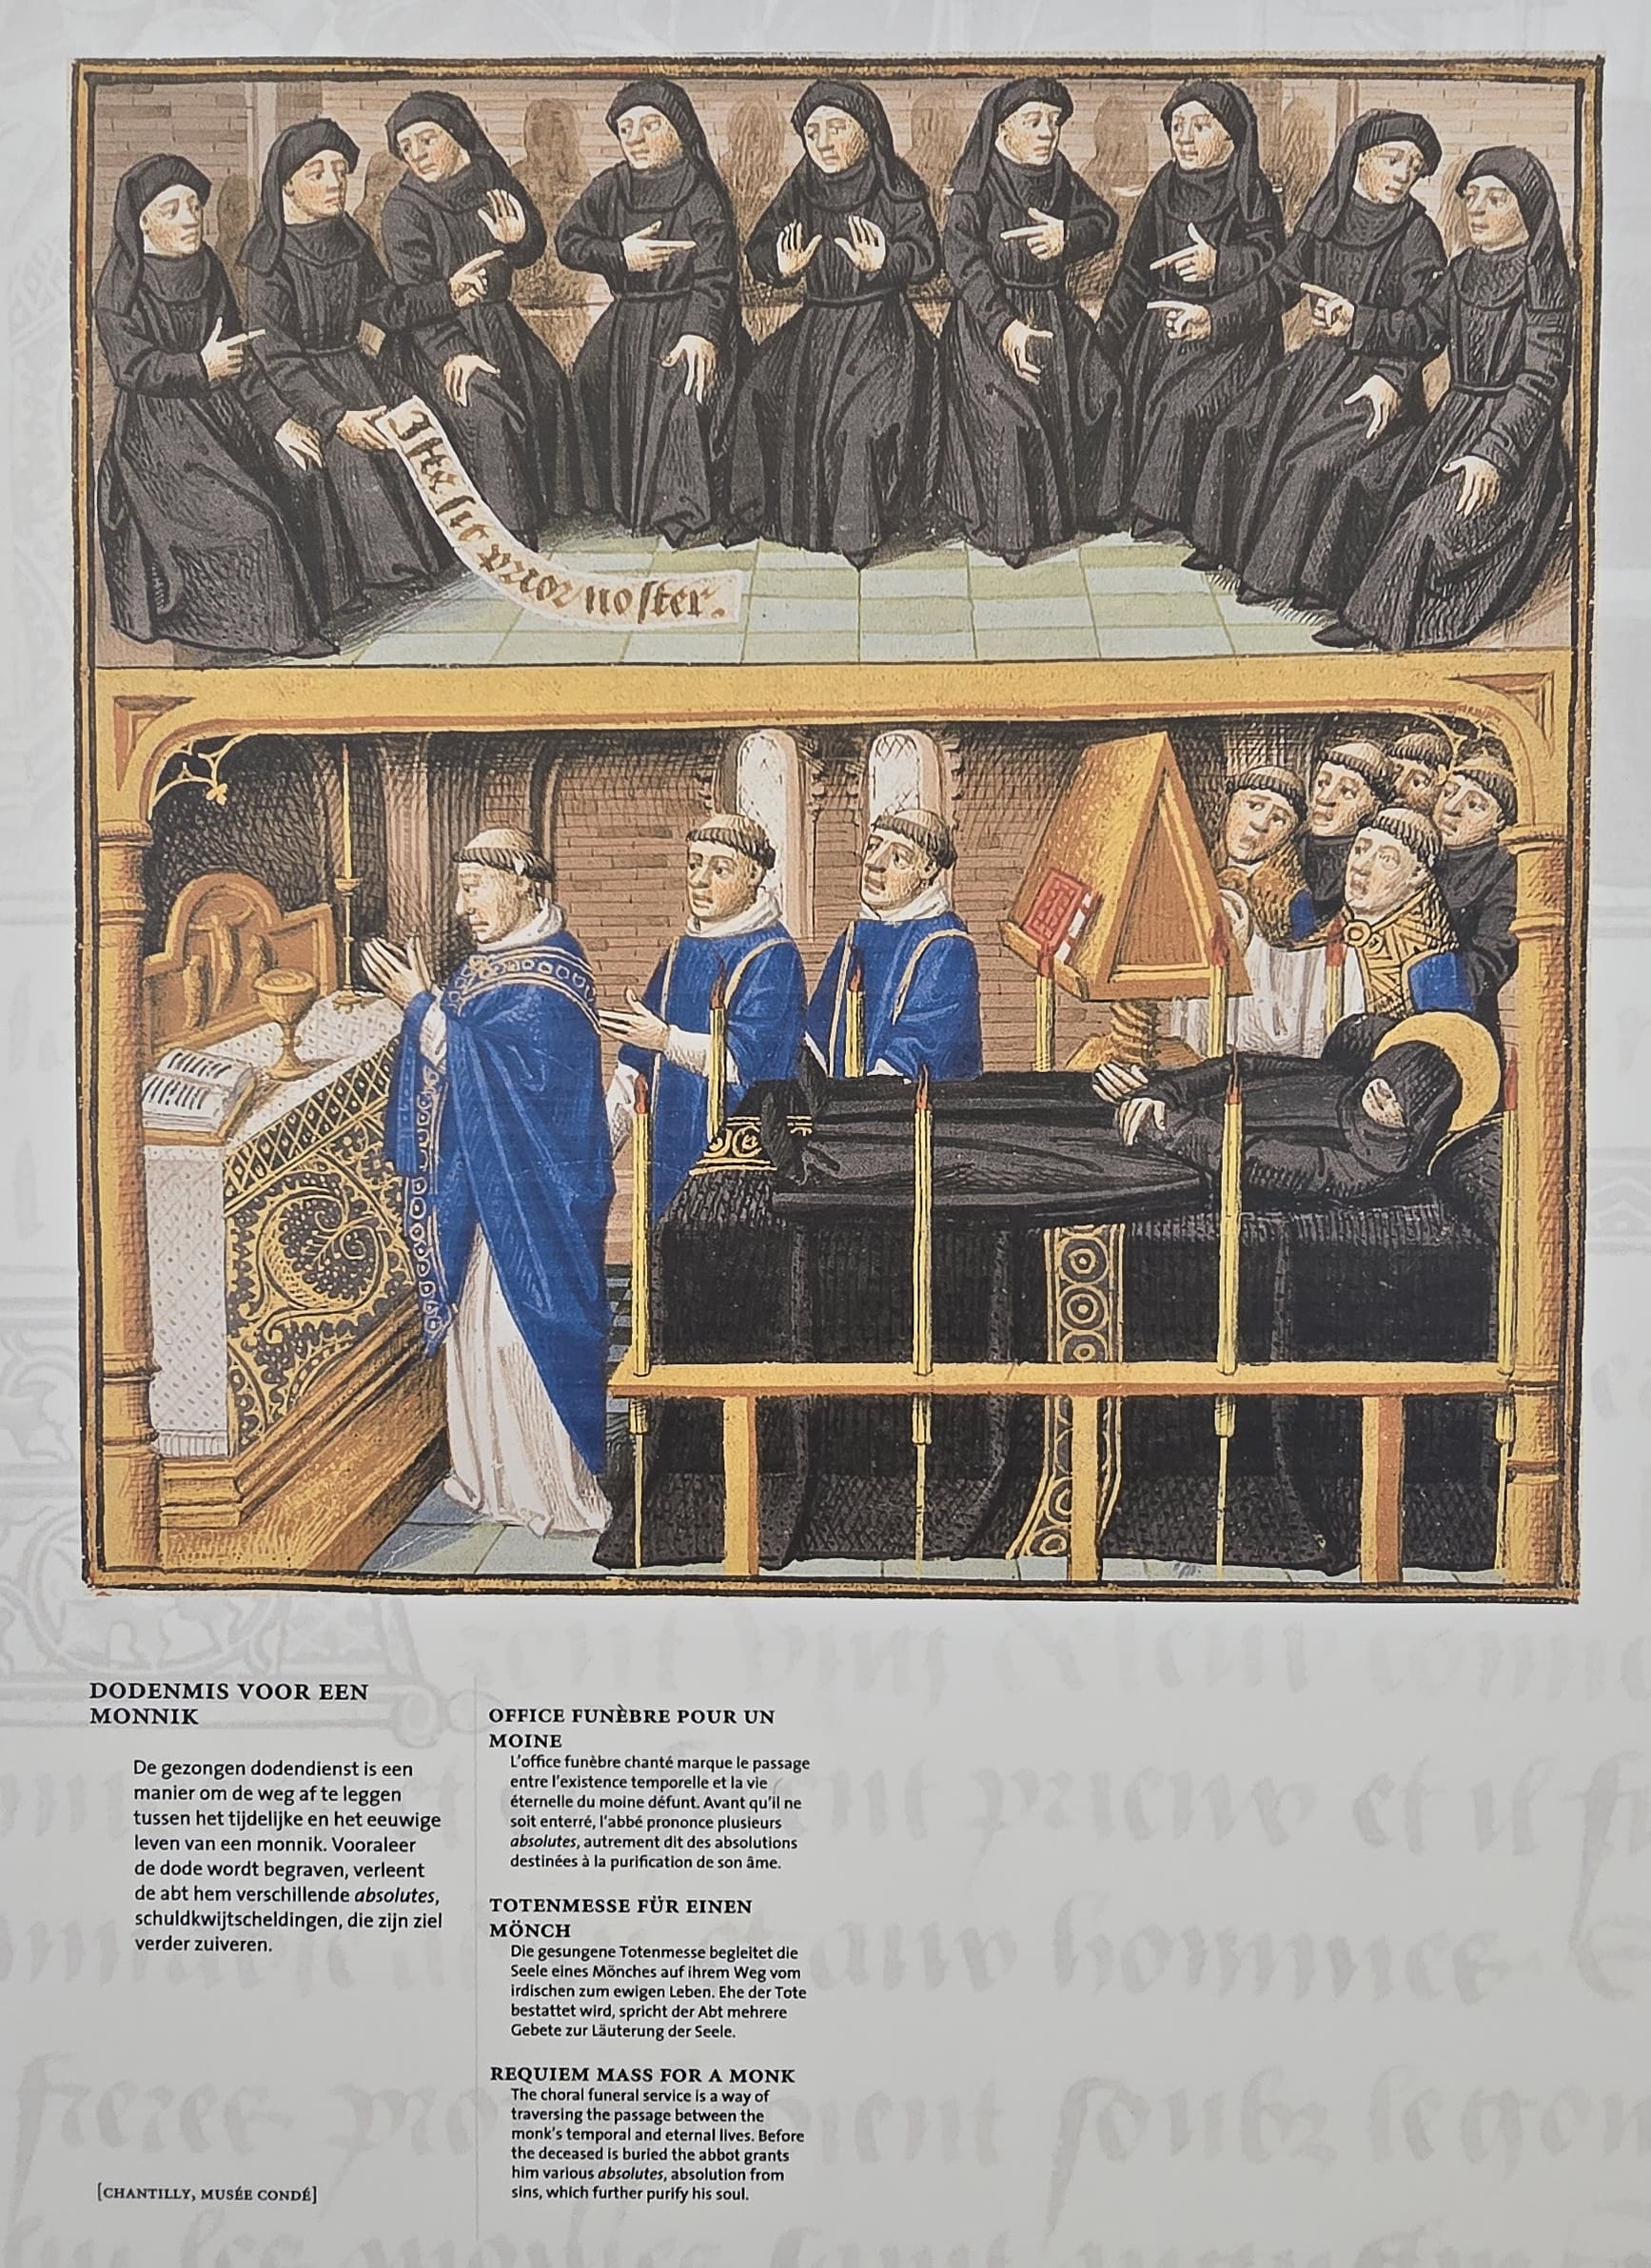 Iste sit prior noster.
DODENMIS VOOR EEN
MONNIK
De gezongen dodendienst is een
manier om de weg af te leggen
tussen het tijdelijke en het eeuwige
leven van een monnik. Vooraleer
de dode wordt begraven, verleent
de abt hem verschillende absolutes,
schuldkwijtscheldingen, die zijn ziel
verder zuiveren.
[CHANTILLY, MUSÉE CONDÉ]
OFFICE FUNÈBRE POUR UN
MOINE
L'office funèbre chanté marque le passage
entre l'existence temporelle et la vie
éternelle du moine défunt. Avant qu'il ne
soit enterré, l'abbé prononce plusieurs
absolutes, autrement dit des absolutions
destinées à la purification de son âme.
TOTENMESSE FÜR EINEN
MÖNCH
Die gesungene Totenmesse begleitet die
Seele eines Mönches auf ihrem Weg vom
irdischen zum ewigen Leben. Ehe der Tote
bestattet wird, spricht der Abt mehrere
Gebete zur Läuterung der Seele.
REQUIEM MASS FOR A MONK
The choral funeral service is a way of
traversing the passage between the
monk's temporal and eternal lives. Before
the deceased is buried the abbot grants
him various absolutes, absolution from
sins, which further purify his soul.